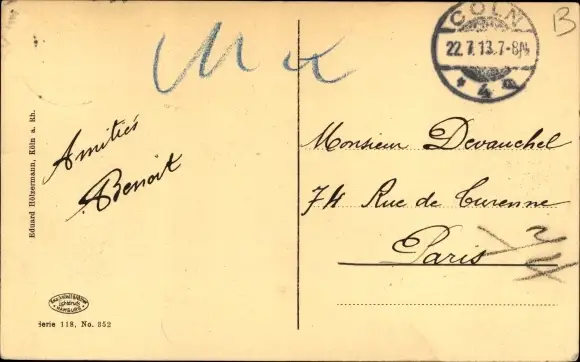 CÖLN
22.7.13.7-8N
* 4 a
B
Amitiés
Benoit
Monsieur Devauchel
74 Rue de Turenne
Paris
Eduard Hölzermann, Köln a. Rh.
HAMBURG
Serie 118, No. 352